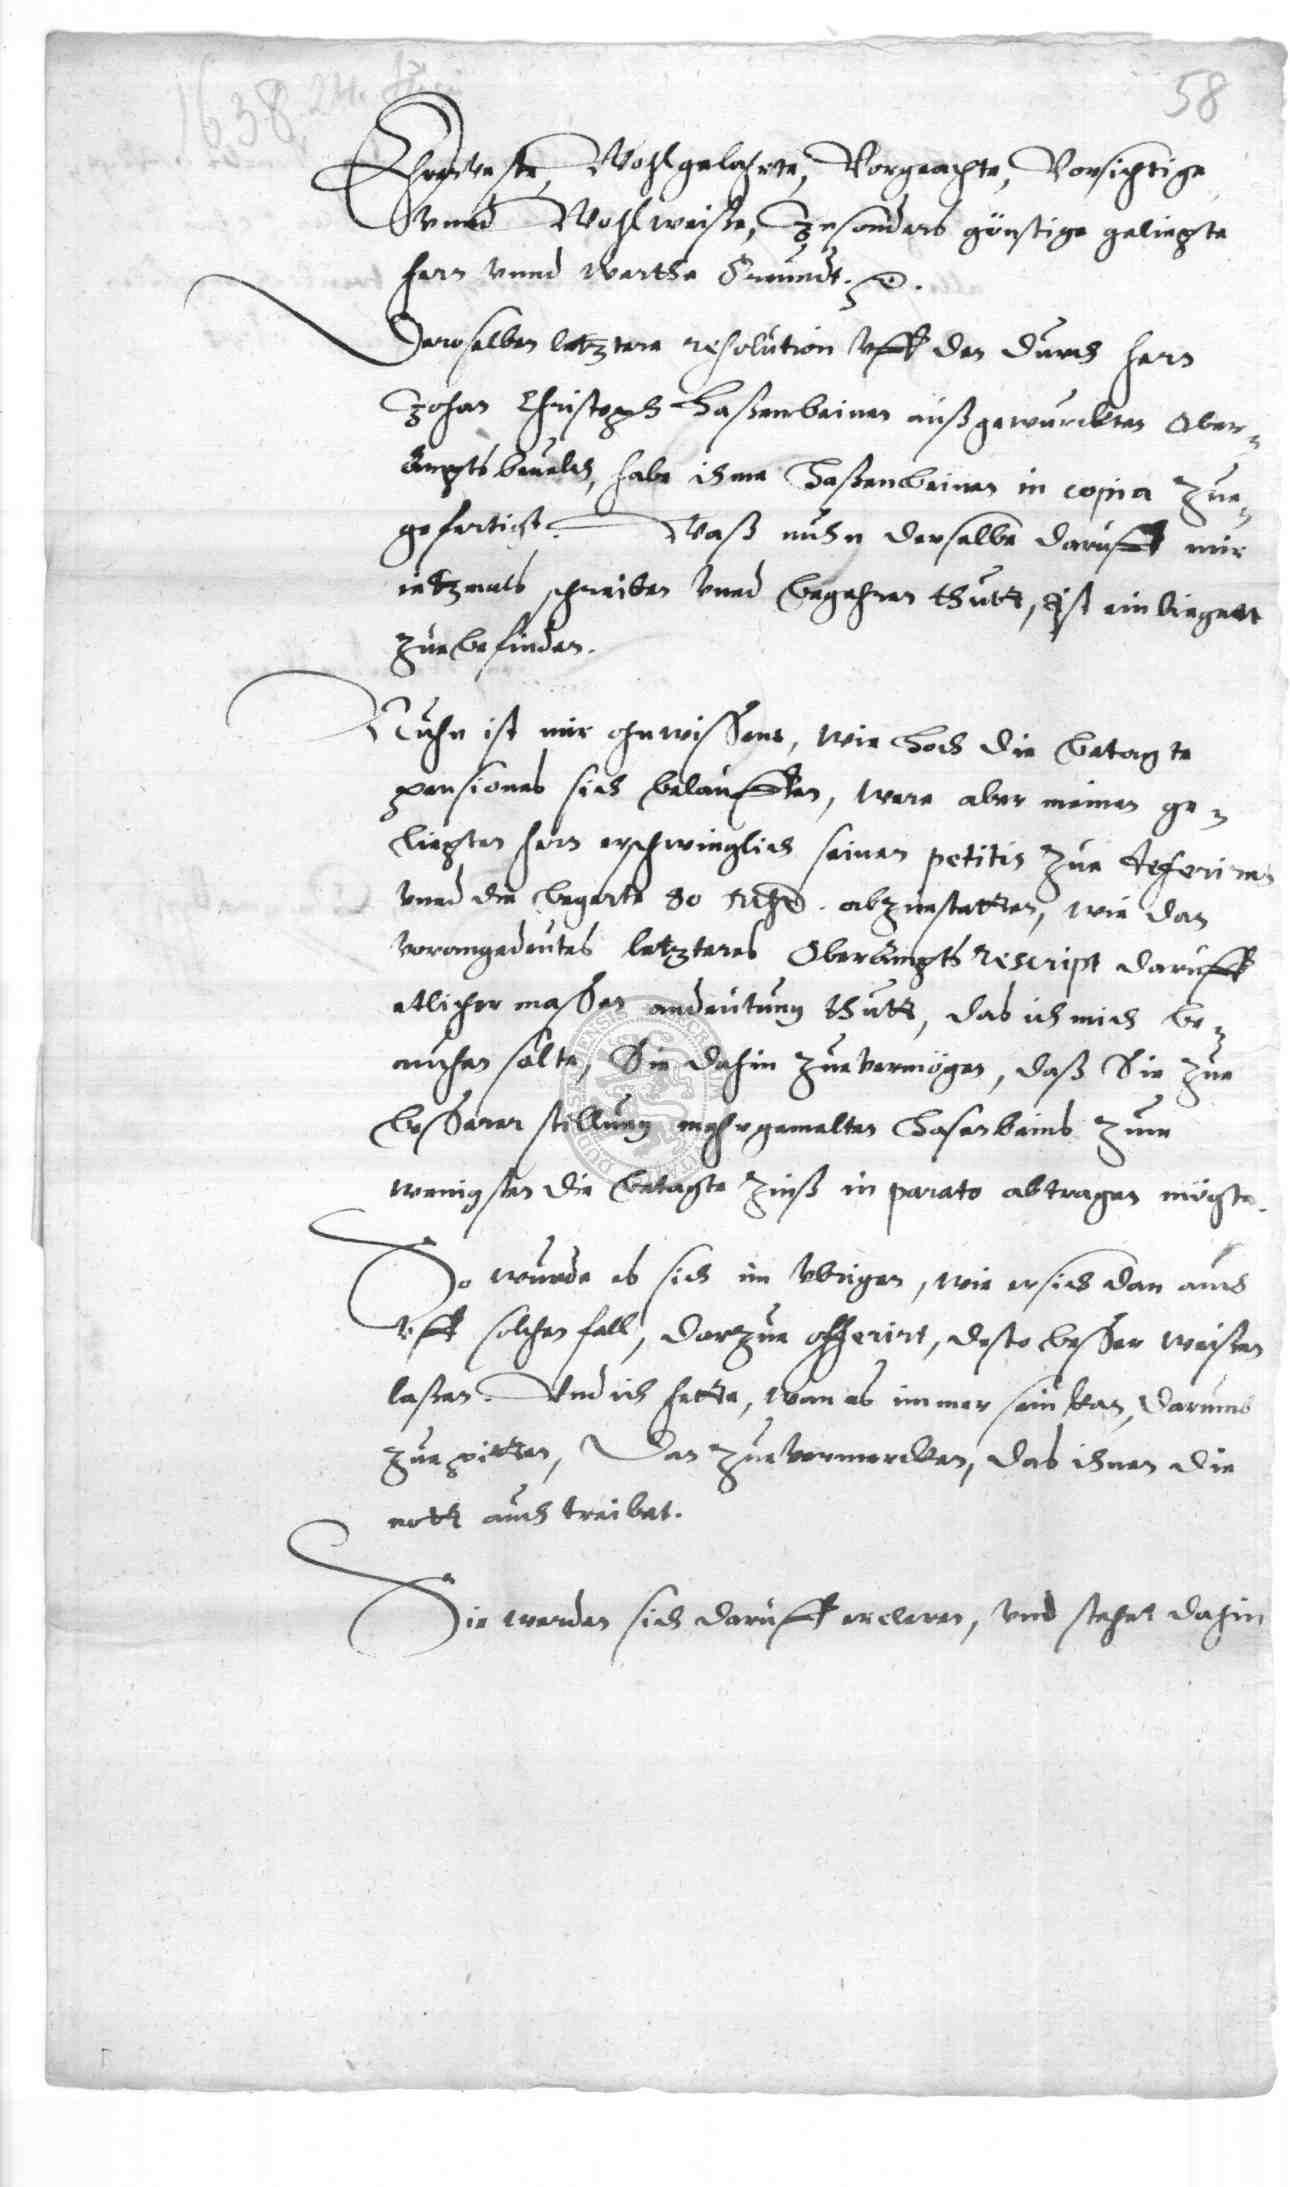 1638. 24.
58
Ehrnveste, Wohlgelahrte, Vorgeachte, Vorsichtige
vnnd Wohlweiße, Jnsonders günstige geliepte
hern vnnd werthe Freundt.
Deroselben letztere resolution vff den durch hern
Johan Christoph Haßenbeinen außgewurckten Ober-
Ampts bevelch, habe ihme Haßenbeinen in copia zue-
gefertigt. Waß nuhn derselbe daruff mir
ietzmals schreiben vnnd begehren thutt, ist einliegent
zue befinden.
Nuhn ist mir ohnwissent, wie hoch die betagte
pensiones sich belauffen, were aber meinen ge-
liepten hern erschwinglich seinen petitis zue deferiren
vnnd die begerte 80 abzuestatten, wie dan
vorangedeutes letzteres OberAmpts rescript daruff
etlicher maßen andeutung thutt, das ich mich be-
muhen solte, Sie dahin zue vermögen, daß Sie zue
besserer stillung mehrgemelten Hasenbeins zum
wenigsten die betagte zinß in parato abtragen mögte.
So wurde es sich im vbrigen, wie er sich dan auch
vff solchen fall, darzue offerirt, desto besser weisen
laßen. Vnd ich hette, wan es immer sein kan, darumb
zue pitten, Dan zue vermercken, das ihnen die
nott auch treibet.
Sie werden sich daruff ercleren, vnd stehet dahin